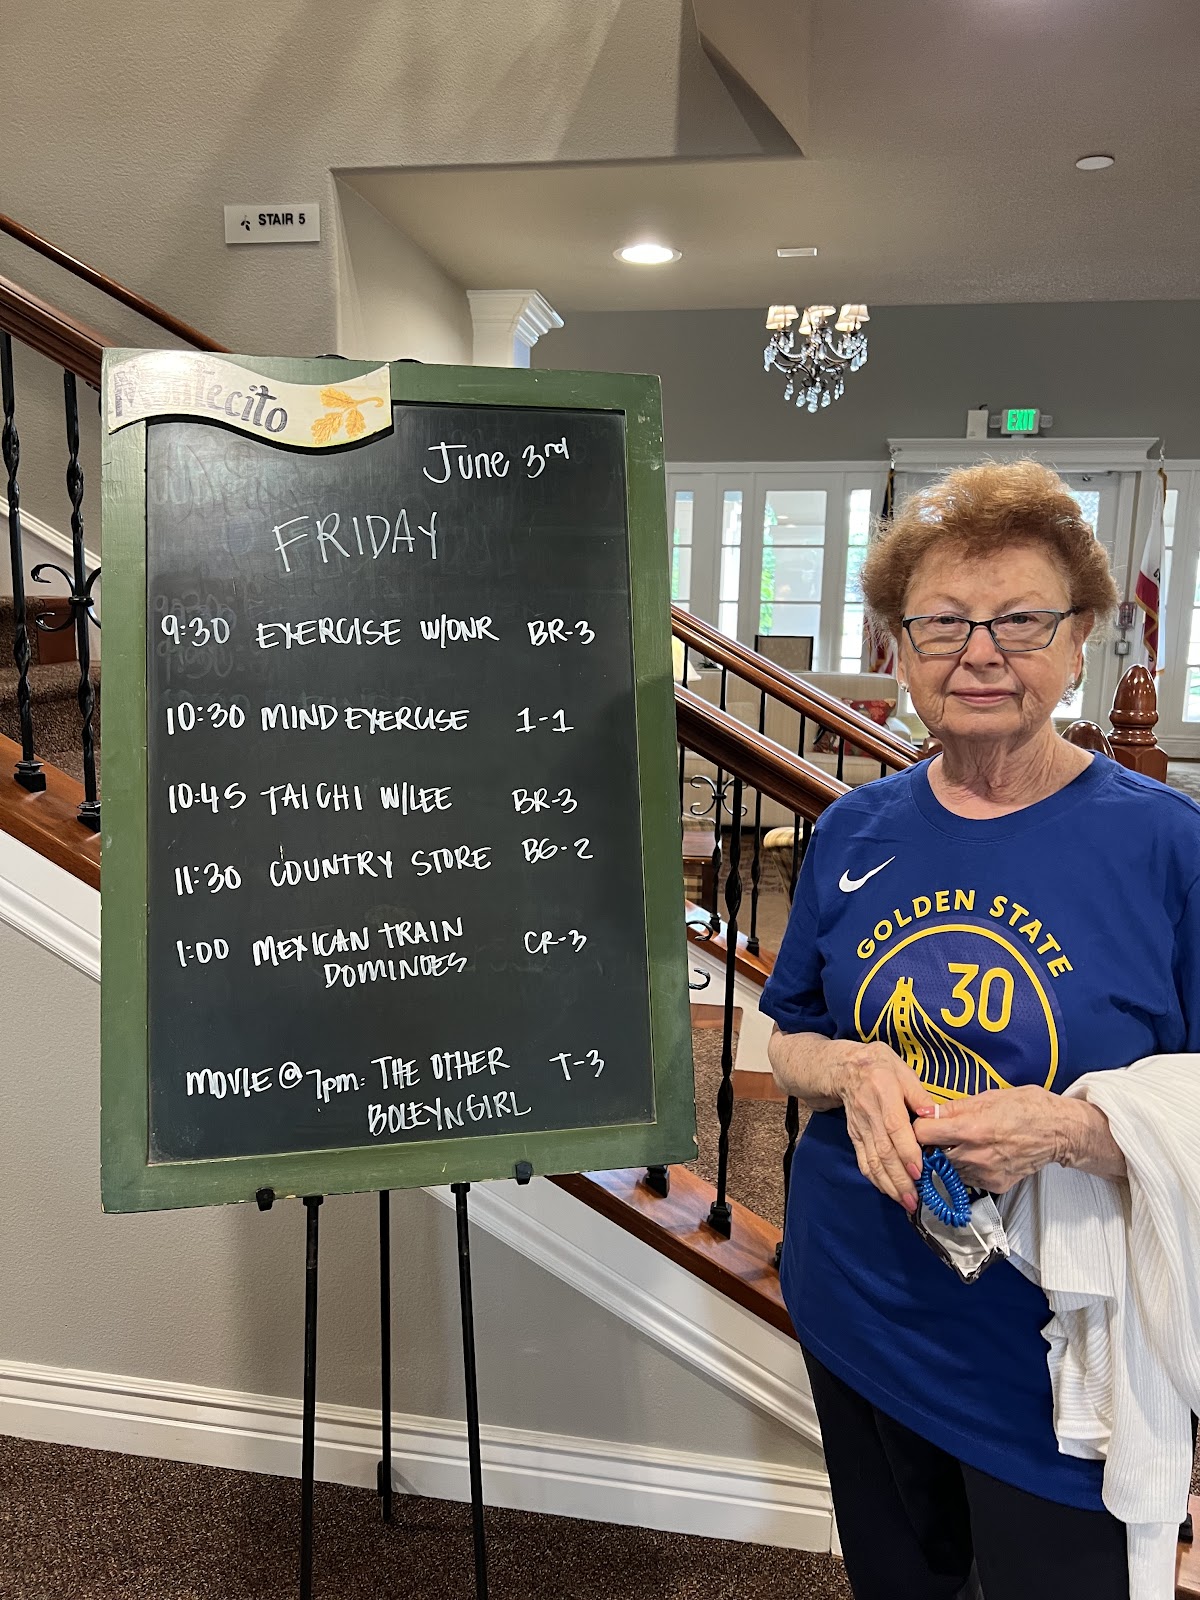 STAIR 5
Montecito
June 3rd
FRIDAY
9:30 EXERCISE W/ONR BR-3
10:30 MIND EXERCISE 1-1
10:45 TAI CHI W/LEE BR-3
11:30 COUNTRY STORE BG-2
1:00 MEXICAN TRAIN CR-3
DOMINOES
MOVIE @ 7pm: THE OTHER T-3
BOLEYN GIRL
EXIT
GOLDEN STATE
30